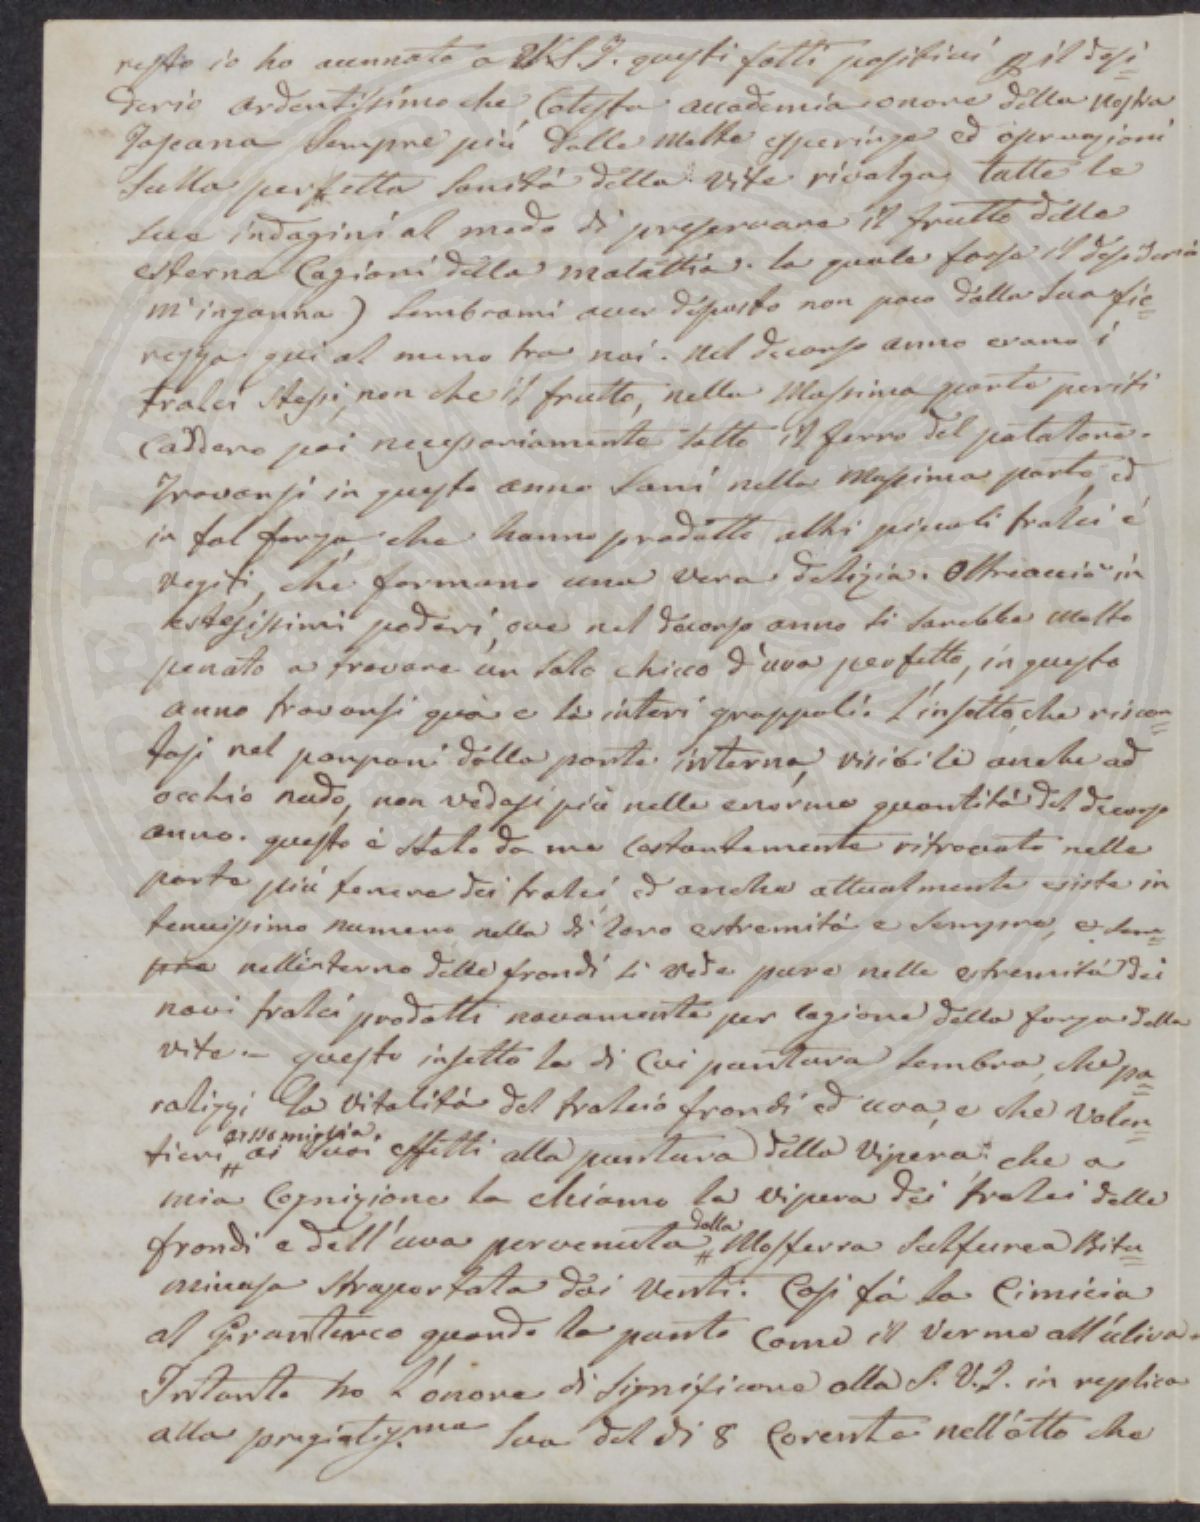 resto io ho acennato a V.S.I. questi fatti positivi p il desi=
derio ardentissimo che, Cotesta accademia onore della Nostra
Toscana Sempre più dalle Molte esperinze ed osservazioni
Sulla perfetta Sanità della Vite rivolga tutte le
Sue indagini al modo di preservare il frutto dalle
esterna Cagioni della malattia. la quale forse il desiderio
m'inganna) Sembrami aver deposto non poco dalla Sua fie=
rezza qui al meno tra noi. Nel decorso anno erano i
tralci stessi, non che il frutto, nella Massima parte periti
Caddero poi necessariamente sotto il ferro del potatore.
Trovansi in questo anno Sani nella Massima parte, ed
in tal forza, che hanno prodotto altri piccoli tralci e
vegeti, che formano una vera delizia. Oltreacciò in
estesissimi poderi, ove nel decorso anno si sarebbe Molto
penato a trovare un Solo chicco d'uva perfetto, in questo
anno trovansi quà e là interi grappoli. L'insetto, che riscon=
tasi nel panpani dalla parte interna, visibile anche ad
occhio nudo, non vedasi più nelle enorme quantità del decorso
anno. questo è stato da me Costantemente ritrovato nelle
parte più tenere dei tralci, ed anche attualmente esiste in
tenuissimo numero nella di loro estremità e Sempre, e Sem=
pre nell'interno delle frondi si vede pure nelle estremità dei
novi tralci prodotti novamente per cagione della forza della
vite. – questo insetto la di Cui puntura Sembra, che pa=
ralizzi la Vitalità del tralcio frondi ed uva, e che Volen=
tieri assomiglia ai Suoi effetti alla puntura della Vipera: che a
mia Cognizione la chiamo la vipera dei tralci delle
frondi e dell'uva pervenuta dalla Mosferra Sulfurea Bitu=
minosa straportata dai Venti. Cosi fá la Cimicia
al Granturco quando la punte Come il Verme all'uliva.
Intanto ho l'onore di Significare alla S.V.I. in replica
alla pregiatiss.ma Sua del di 8 Corente nell'atto che